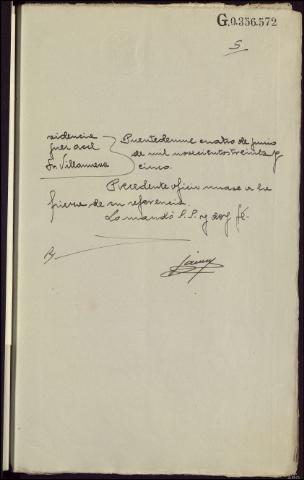 G.0.356.572
5
Providencia
Juez accl
Sr. Villanueva
Puentedeume cuatro de junio
de mil novecientos treinta y
cinco.
Precedente oficio unase a la
pieza de su referencia.
Lo mandó S.Sª y doy fé.